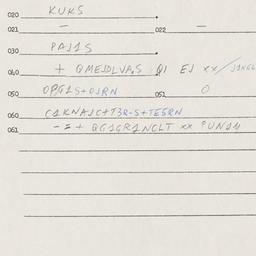 020 KUKS
021 — 022 —
030 PAJ1S
040 + QMEJDLVA,S QI EJ xx
050 OPG1S+OJRN 051 O
060 C1KNAJC+T3R-S+TE5RN
061 - = + QG1GR1NCLT xx PUN1M